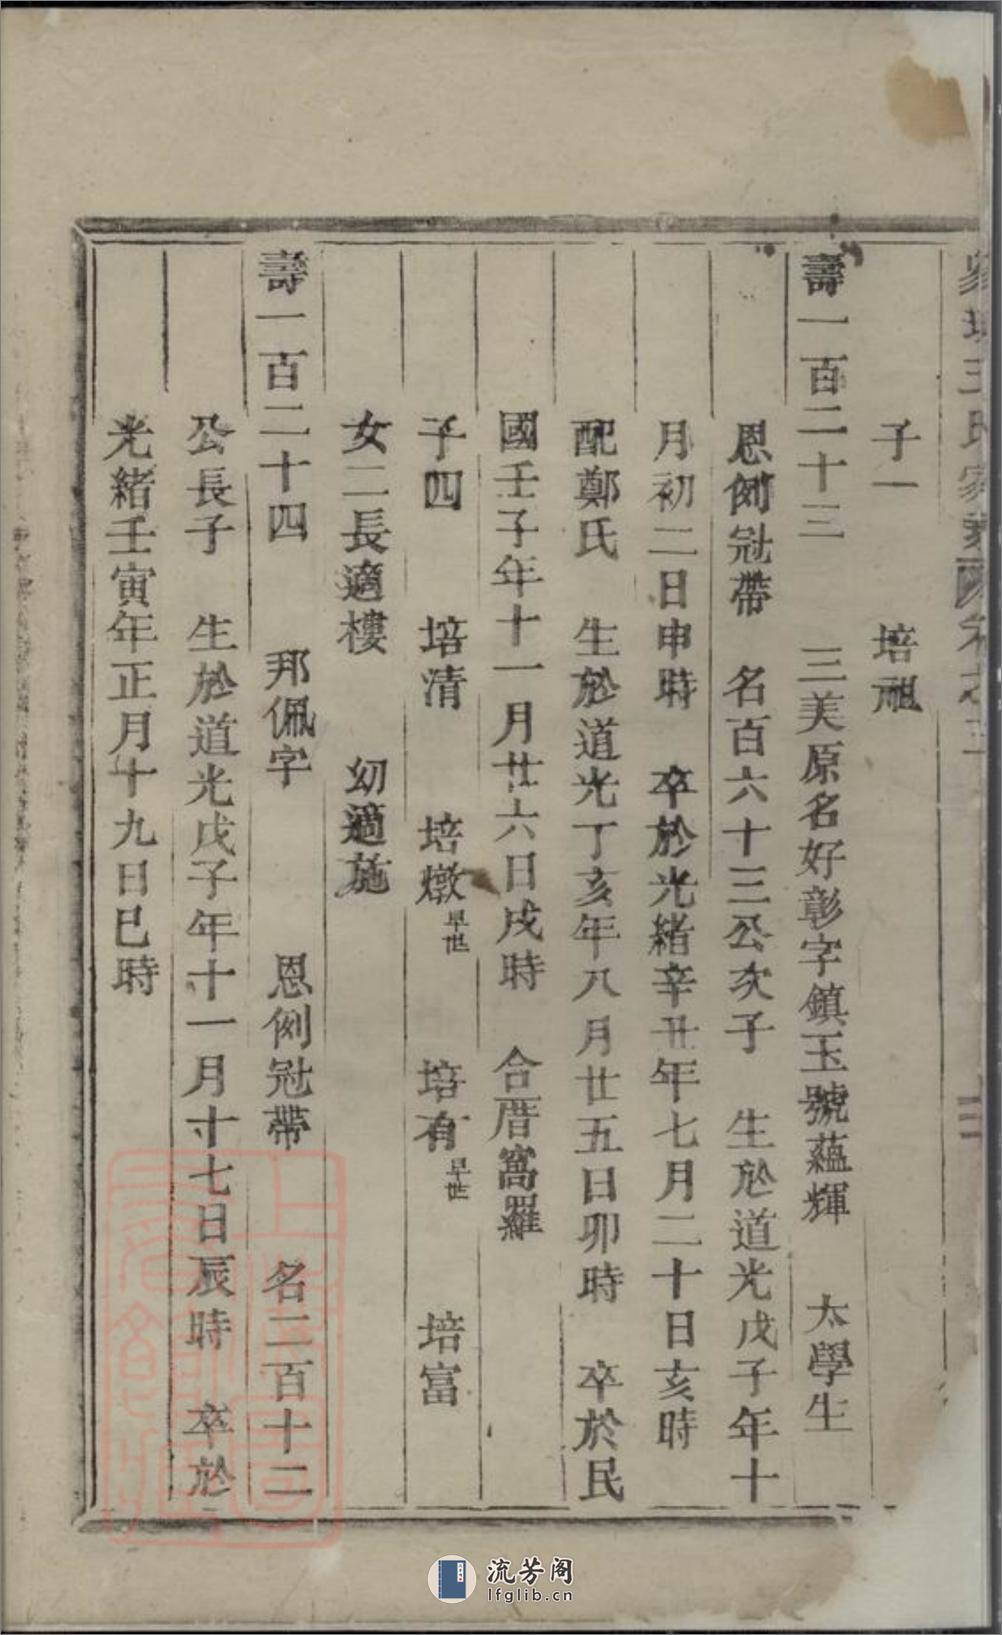 王氏家
子一　培祖
壽一百二十三　三美原名好彰字鎮玉號蘊輝　太學生
恩例冠帶　名百六十三公次子　生於道光戊子年十
月初二日申時　卒於光緒辛丑年七月二十日亥時
配鄭氏　生於道光丁亥年八月廿五日卯時　卒於民
國壬子年十一月廿六日戌時　合厝窩羅
子四　培清　培燉早世　培有早世　培富
女二長適樓　幼適施
壽一百二十四　邦佩字　恩例冠帶　名二百十二
公長子　生於道光戊子年十一月十七日辰時　卒於
光緒壬寅年正月十九日巳時
流芳阁
lfglib.cn